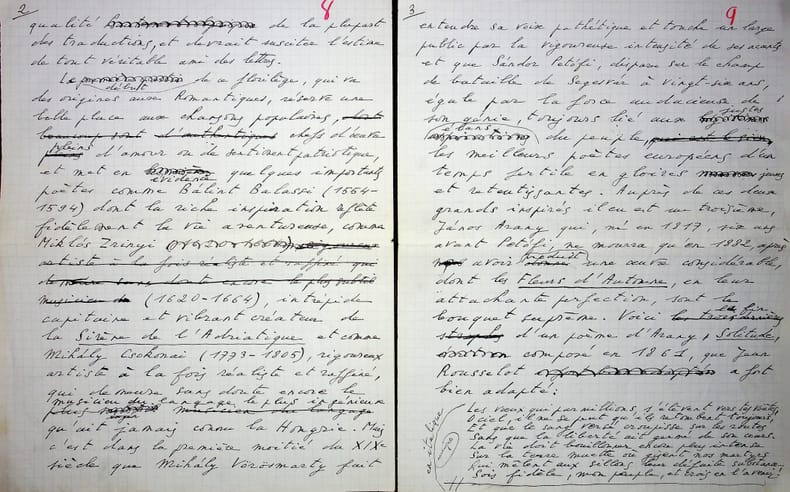 2
8
qualité de la plupart
des traductions, et devrait susciter l'estime
de tout véritable ami des lettres.
Le début de ce florilège, qui va
des origines aux Romantiques, réserve une
belle place aux chansons populaires, dont
beaucoup sont d'authentiques chefs d'œuvre
pleins d'amour ou de sentiment patriotique,
et met en évidence quelques importants
poètes comme Bálint Balassi (1554-
1594) dont la riche inspiration reflète
fidèlement la vie aventureuse, comme
Miklós Zrinyi rigoureux
artiste à la fois réaliste et raffiné qui
demeure sans doute encore le plus subtil
musicien de (1620-1664), intrépide
capitaine et vibrant créateur de
la Sirène de l'Adriatique et comme
Mihály Csokonai (1773-1805), rigoureux
artiste à la fois réaliste et raffiné,
qui demeure sans doute encore le
musicien du langage le plus ingénieux
plus musicien du langage
qu'ait jamais connu la Hongrie. Mais
c'est dans la première moitié du XIXe
siècle que Mihály Vörösmarty fait
3
9
entendre sa voix pathétique et touche un large
public par la vigoureuse intensité de ses accents
et que Sándor Petöfi, disparu sur le champ
de bataille de Segesvár à vingt-six ans,
égale par la force audacieuse de
son génie, toujours lié aux justes
élans du peuple, qui est le sien
les meilleurs poètes européens d'un
temps fertile en gloires jeunes
et retentissantes. Auprès de ces deux
grands inspirés il en est un troisième,
János Arany qui, né en 1817, six ans
avant Petöfi, ne mourra qu'en 1882, après
avoir produit une œuvre considérable,
dont les Fleurs d'Automne, en leur
attachante perfection, sont le
bouquet suprême. Voici la fin
les trois dernières
strophes d'un poème d'Arany, Solitude,
composé en 1861, que Jean
Rousselot a fort
bien adapté :
en italique
Les vœux que formèrent, s'élevant vers les
O ciel, il ne se peut qu'ils retombent toujours,
Et que le sang versé croupisse sur les routes
Sans que la liberté ait germé de son cours.
La vie doit bouillonner plus intense
Sur la terre muette où gisent nos martyrs
Qui mêlent aux sillons leur défaite
Sois fidèle, mon peuple, et crois en l'avenir